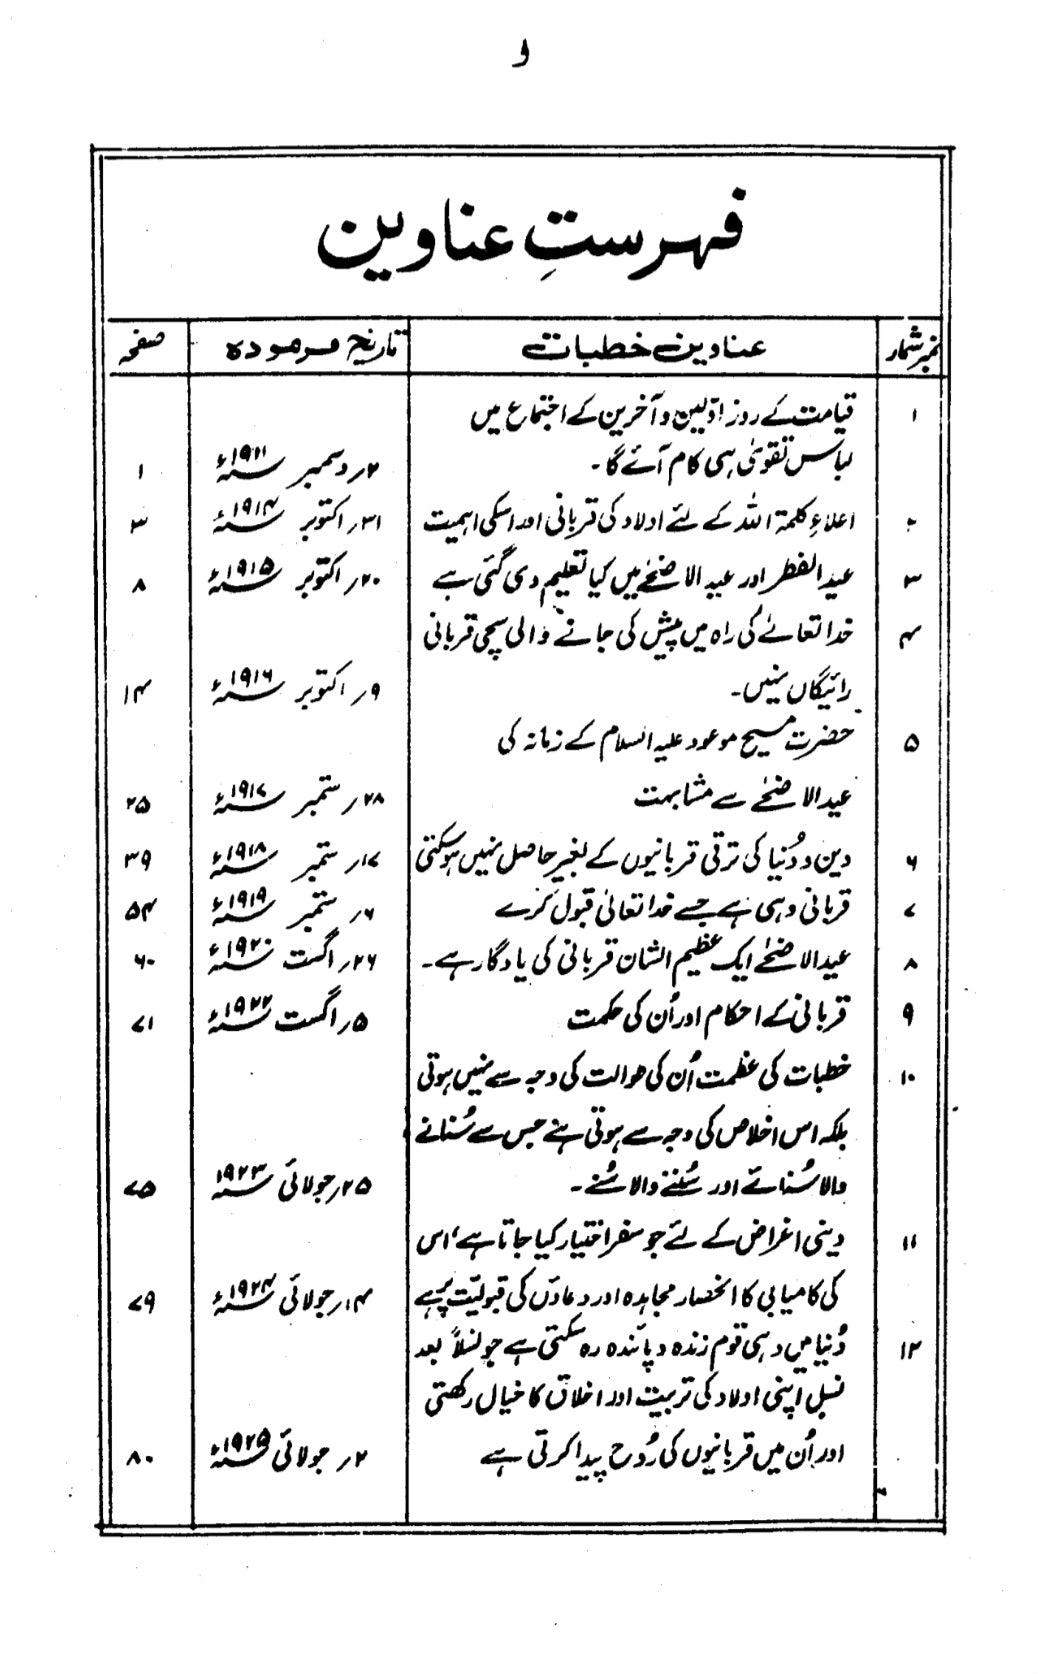 و
فہرستِ عناوین
نمبر شمار عناوین خطبات تاریخ فرمودہ صفحہ
۱ قیامت کے روز اوّلین و آخرین کے اجتماع میں
لباس تقویٰ ہی کام آئے گا۔ ۲ر دسمبر ۱۹۱۱ء ۱
۲ اعلاءِ کلمۃ اللہ کے لئے اولاد کی قربانی اور اسکی اہمیت ۳۱ر اکتوبر ۱۹۱۴ء ۳
۳ عید الفطر اور عید الاضحےٰ میں کیا تعلیم دی گئی ہے ۲۰ر اکتوبر ۱۹۱۵ء ۸
۴ خدا تعالےٰ کی راہ میں پیش کی جانے والی سچی قربانی
رائیگاں نہیں۔ ۹ر اکتوبر ۱۹۱۶ء ۱۴
۵ حضرت مسیح موعود علیہ السلام کے زمانہ کی
عید الاضحےٰ سے مشابہت ۲۸ر ستمبر ۱۹۱۷ء ۲۵
۶ دین و دُنیا کی ترقی قربانیوں کے بغیر حاصل نہیں ہو سکتی ۱۷ر ستمبر ۱۹۱۸ء ۳۹
۷ قربانی وہی ہے جسے خدا تعالیٰ قبول کرے ۶ر ستمبر ۱۹۱۹ء ۵۴
۸ عید الاضحےٰ ایک عظیم الشان قربانی کی یادگار ہے۔ ۲۶ر اگست ۱۹۲۰ء ۶۰
۹ قربانی کے احکام اور اُن کی حکمت ۵ر اگست ۱۹۲۲ء ۷۱
۱۰ خطبات کی عظمت اُن کی طوالت کی وجہ سے نہیں ہوتی
بلکہ اس اخلاص کی وجہ سے ہوتی ہے جس سے سُنانے
والا سُنائے اور سُننے والا سُنے۔ ۲۵ر جولائی ۱۹۲۳ ۷۵
۱۱ دینی اغراض کے لئے جو سفر اختیار کیا جاتا ہے، اس
کی کامیابی کا انحصار مجاہدہ اور دعاؤں کی قبولیت پر ہے ۱۴ر جولائی ۱۹۲۴ء ۷۹
۱۲ دُنیا میں وہی قوم زندہ و پائندہ رہ سکتی ہے جو نسلاً بعد
نسلٍ اپنی اولاد کی تربیت اور اخلاق کا خیال رکھتی
اور اُن میں قربانیوں کی رُوح پیدا کرتی ہے ۲ر جولائی ۱۹۲۵ء ۸۰